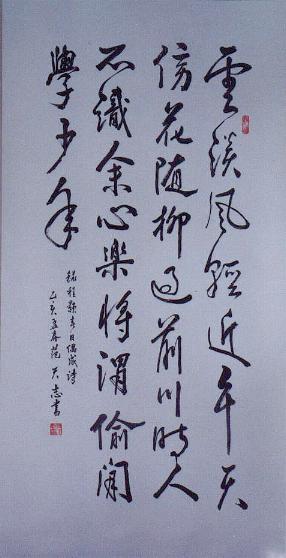 雲淡風輕近午天
傍花随柳過前川時人
不識余心樂將謂偷閒
學少年
錄程颢春日偶成詩
乙亥孟春範天志書